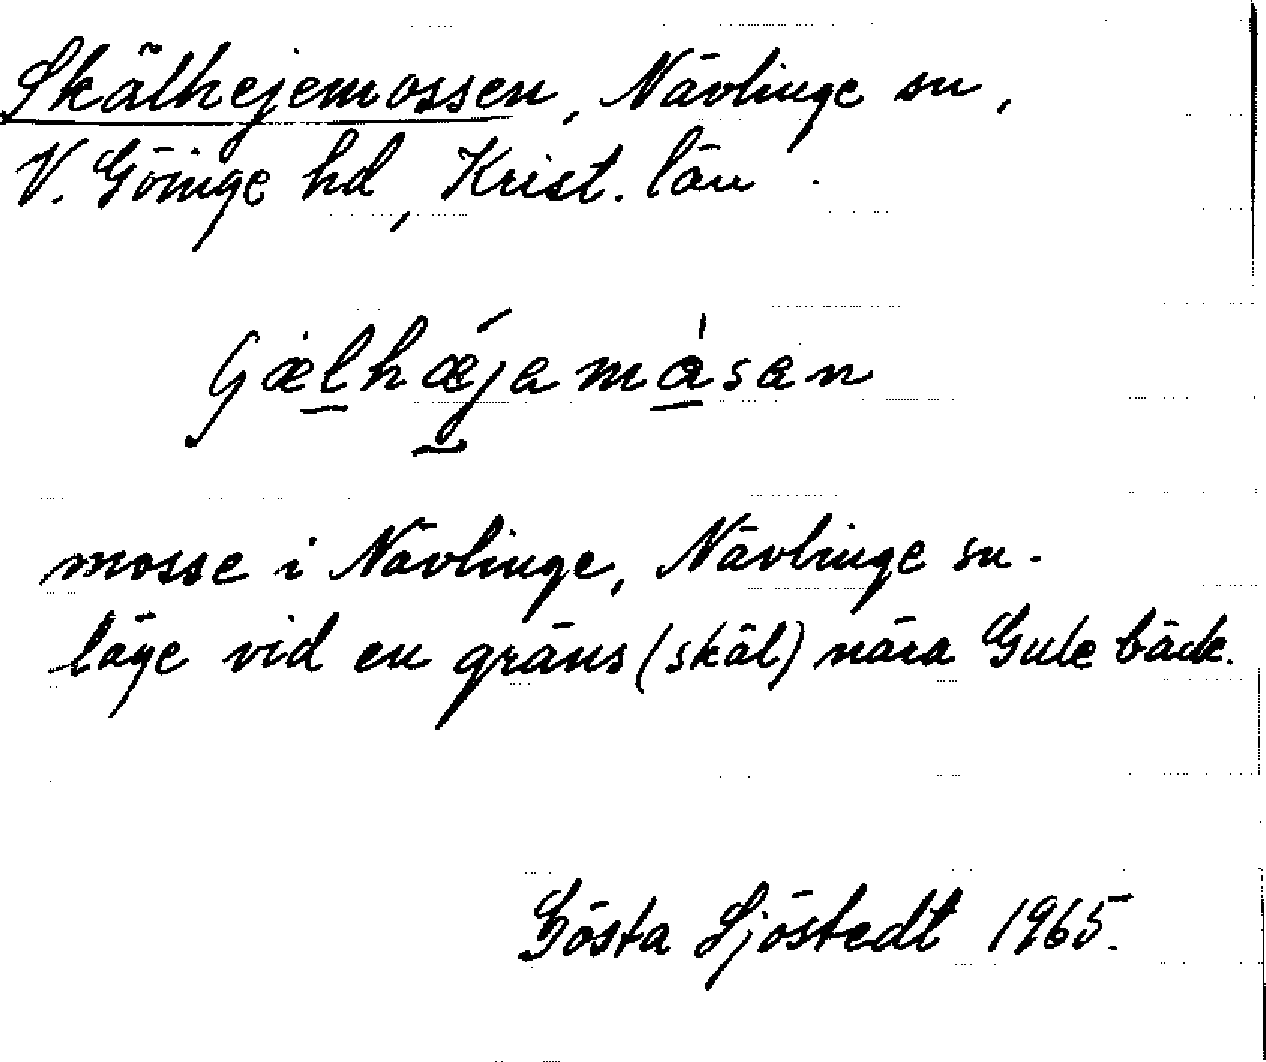 Skälhejemossen, Nävlinge sn,
V. Göinge hd, Krist. län.
ʃælhǽjamåsan
mosse i Nävlinge, Nävlinge sn.
läge vid en gräns (skäl) nära Gule bäck.
Gösta Sjöstedt 1965.